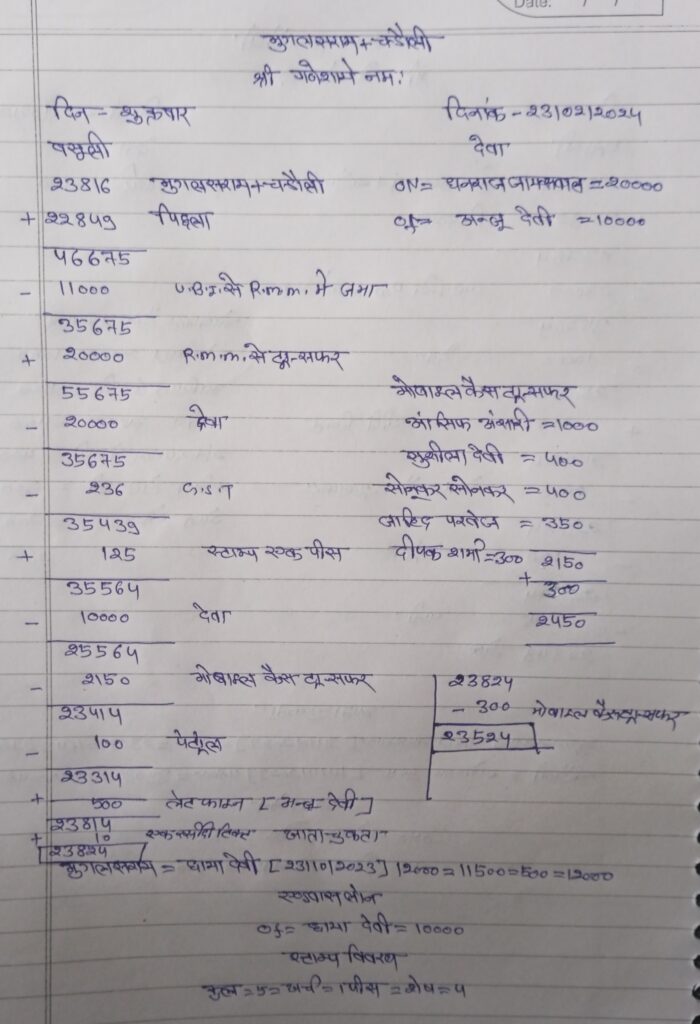 Date: / /
मुगलसराय + चन्दौली
श्री गनेशाये नमः
दिन - शुक्रवार दिनांक - 23/02/2024
वसूली देवा
23816 मुगलसराय + चन्दौली ON = धनराज जायसवाल = 20000
+ 22849 पिछला of = अन्जू देवी = 10000
46675
- 11000 U.B.I. से R.m.m. मे जमा
35675
+ 20000 R.m.m. से ट्रान्सफर
55675 मोबाइल कैस ट्रान्सफर
- 20000 देवा आसिफ अंसारी = 1000
35675 सुशीला देवी = 400
- 236 G.S.T सोनूकर सोनकर = 400
35439 जाहिद परवेज = 350
+ 125 स्टाम्प एक पीस दीपक शर्मा = 300 2150
35564 + 300
- 10000 देवा 2450
25564
- 2150 मोबाइल कैस ट्रान्सफर 23824
23414 - 300 मोबाइल कैस ट्रान्सफर
- 100 पेट्रोल 23524
23314
+ 500 लेट फाइन [ अन्जू देवी ]
23814
+ 10 टिकट खाता चुकता
23824
मुगलसराय = छाया देवी [23/10/2023] 12000 = 11500 = 500 = 12000
एडवांस लोन
of = छाया देवी = 10000
स्टाम्प विवरण
कुल = 5 = खर्च = 1 पीस = शेष = 4